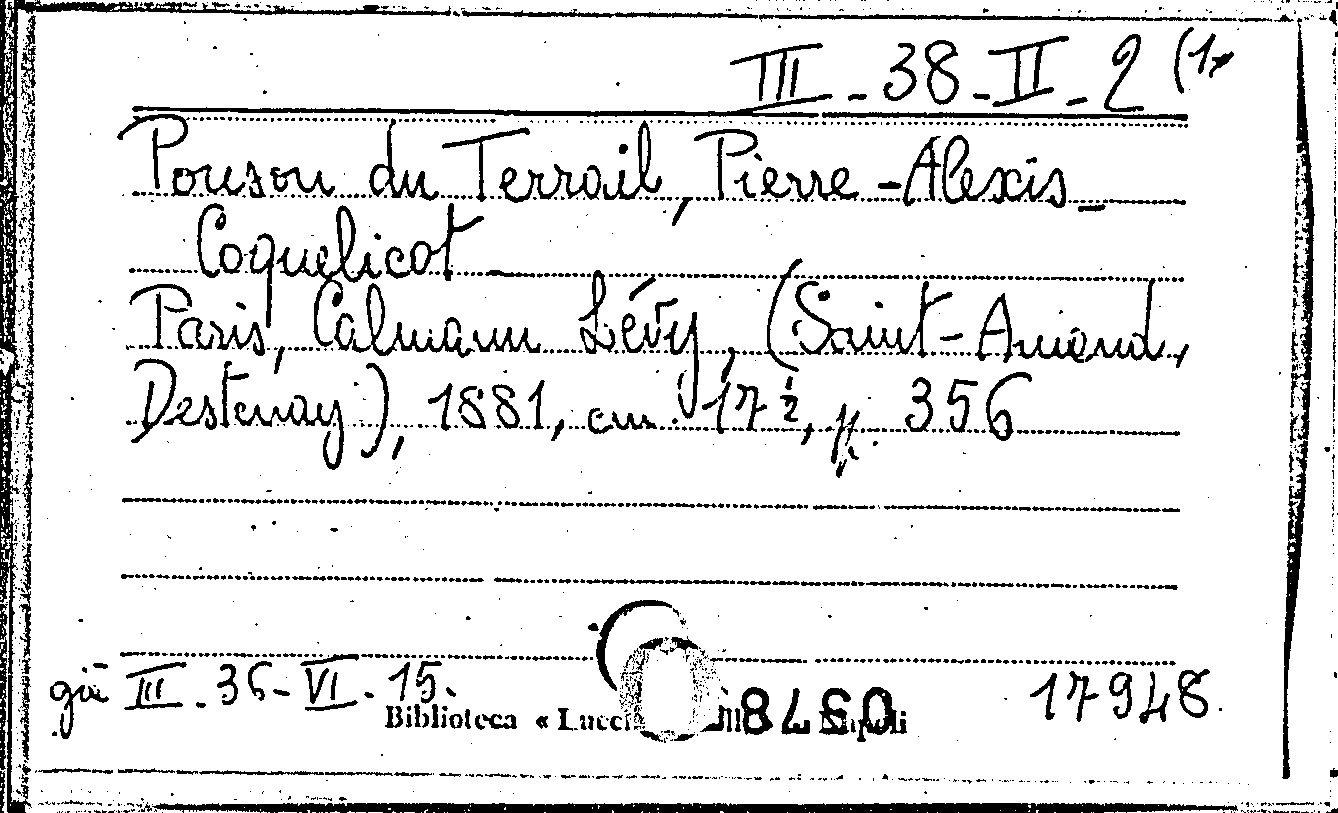 III - 38 - II - 2 (1
Ponson du Terrail, Pierre-Alexis -
Coquelicot -
Paris, Calmann Lévy, (Saint-Amand,
Destenay), 1881, cm. 17 ½, p. 356
già III - 36 - VI - 15.
17948
Biblioteca «